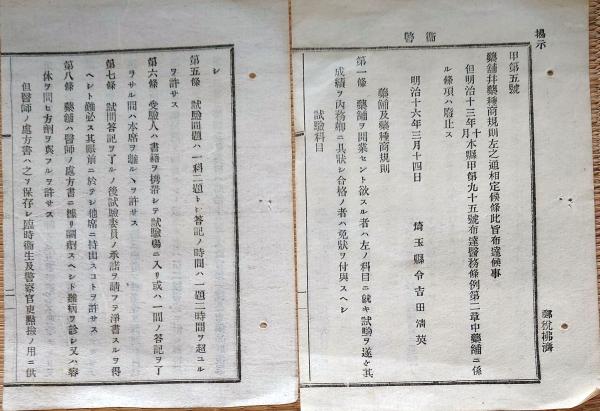 揭示
衞警
甲第五號
藥舖并藥種商規則左之通相定候條此旨布達候事
但明治十三年十一月本縣甲第九十五號布達醫務條例第二章中藥舖ニ係
ル條項ハ廢止ス
明治十六年三月十四日
埼玉縣令吉田淸英
藥舖及藥種商規則
第一條 藥舖ヲ開業セント欲スル者ハ左ノ科目ニ就キ試驗ヲ遂ケ其
成績ヲ內務卿ニ具狀シ合格ノ者ハ免狀ヲ付與スヘシ
試驗科目
レ
第五條 試驗問題ハ一科二題トシ答記ノ時間ハ一題二時間ヲ超ユル
ヲ許サス
第六條 受驗人ハ書籍ヲ携帶シテ試驗塲ニ入リ或ハ一問ノ答記ヲ了
ラサル間ハ本席ヲ離ルヽヲ許サス
第七條 試問答記ヲ了ルノ後試驗委員ノ承諾ヲ請フテ淨書スルヲ得
ヘシト雖必ス其眼前ニ於テシ他席ニ持出スコトヲ許サス
第八條 藥舖ハ醫師ノ處方書ニ據リ調劑スヘシト雖病ヲ診シ又ハ容
体ヲ問ヒ方劑ヲ與フルヲ許サス
但醫師ノ處方書ハ之ヲ保存シ臨時衞生及警察官吏點撿ノ用ニ供